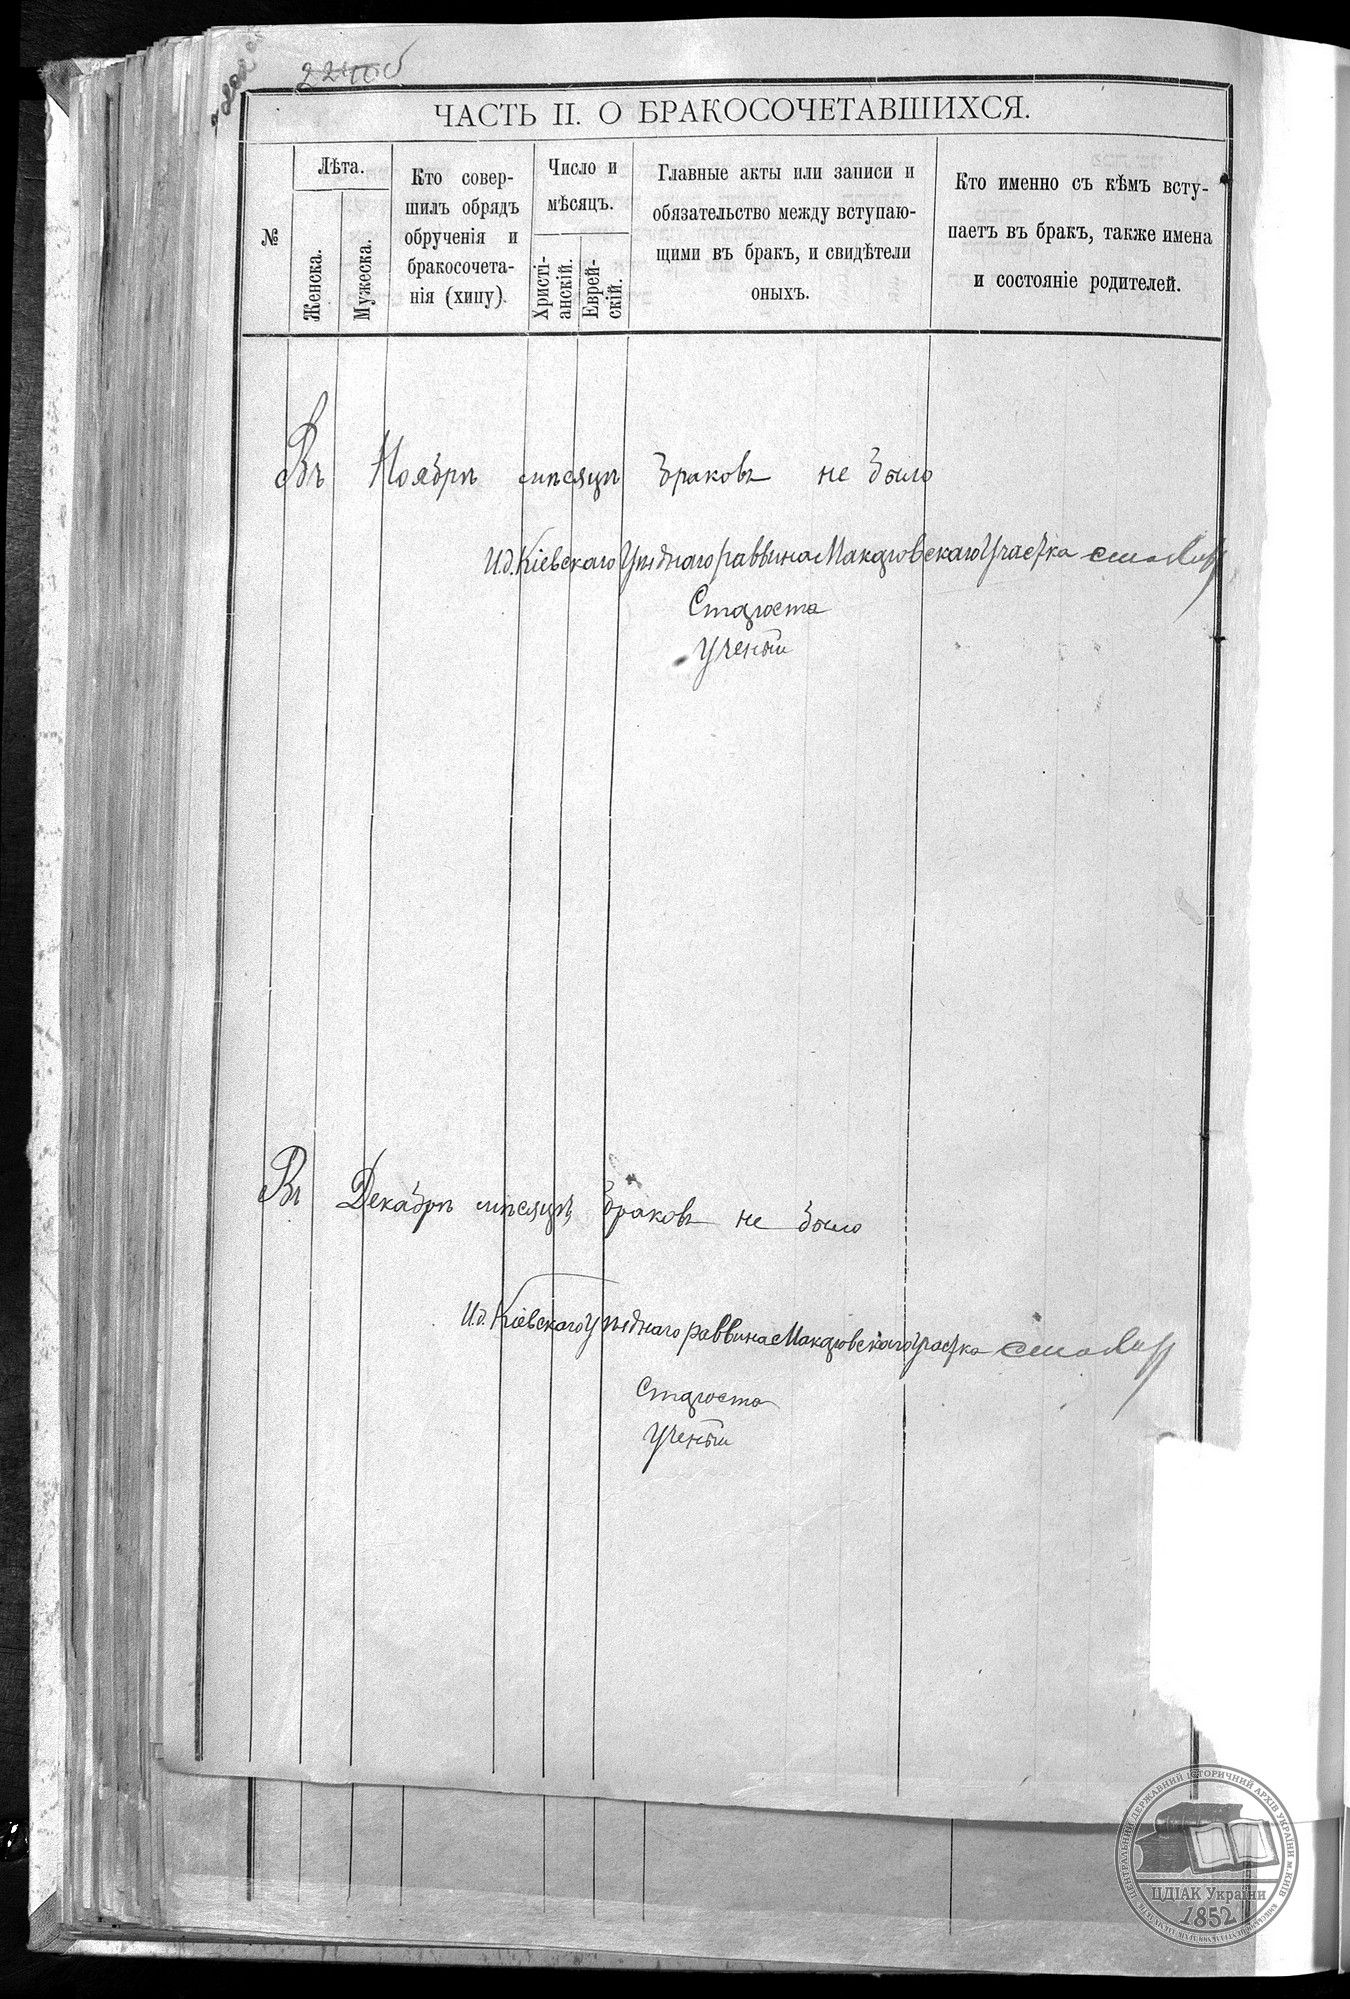 224об
ЧАСТЬ II. О БРАКОСОЧЕТАВШИХСЯ.
№
Лѣта.
Женска.
Мужеска.
Кто совер-
шилъ обрядъ
обрученія и
бракосочета-
нія (хипу).
Число и
мѣсяцъ.
Христі-
анскій.
Еврей-
скій.
Главные акты или записи и
обязательство между вступаю-
щими въ бракъ, и свидѣтели
оныхъ.
Кто именно съ кѣмъ всту-
паетъ въ бракъ, также имена
и состояніе родителей.
Въ Ноябрѣ мѣсяцѣ браковъ не было
И.д. Кіевскаго Уѣзднаго раввина Макаровскаго Участка
Староста
Ученый
Въ Декабрѣ мѣсяцѣ браковъ не было
И.д. Кіевскаго Уѣзднаго раввина Макаровскаго Участка
Староста
Ученый
ЦЕНТРАЛЬНИЙ ДЕРЖАВНИЙ ІСТОРИЧНИЙ АРХІВ УКРАЇНИ м. КИЇВ
ЦДІАК України
1852